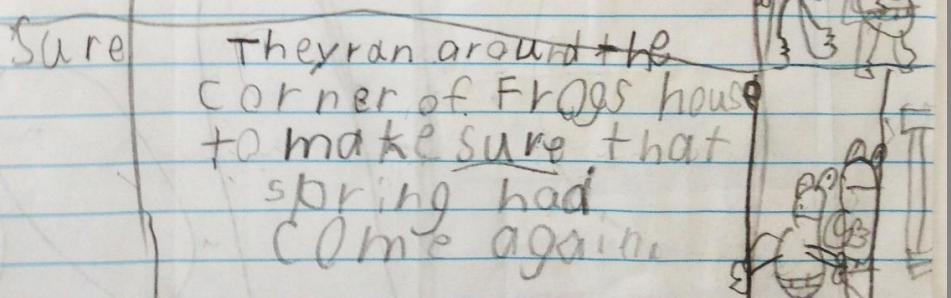 Sure
They ran around the
corner of Frogs house
to make sure that
spring had
come again.